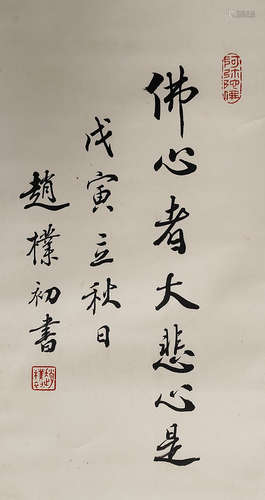 佛心者大悲心是
戊寅立秋日
趙樸初書
阿弥陀佛